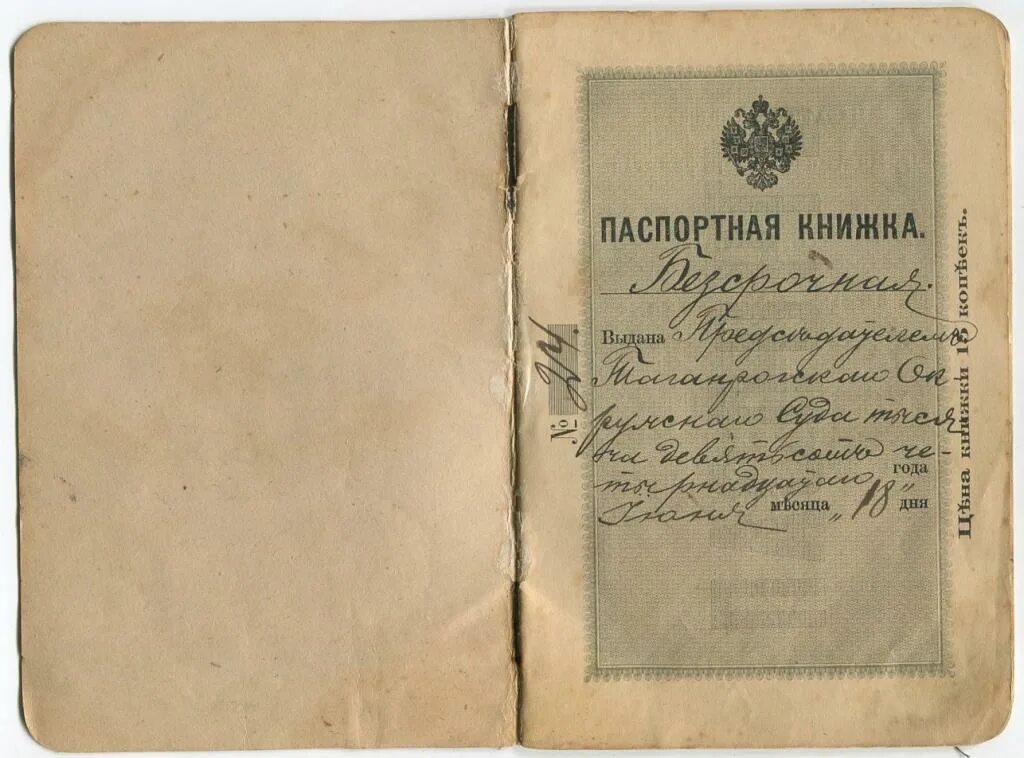 ПАСПОРТНАЯ КНИЖКА.
Безсрочная.
Выдана Предсѣдателемъ
Таганрогскаго Ок-
ружнаго Суда тыся
ча девятьсотъ че-
тырнадцатаго года
Іюня мѣсяца „18" дня
№ 24.
Цѣна книжки 15 копѣекъ.